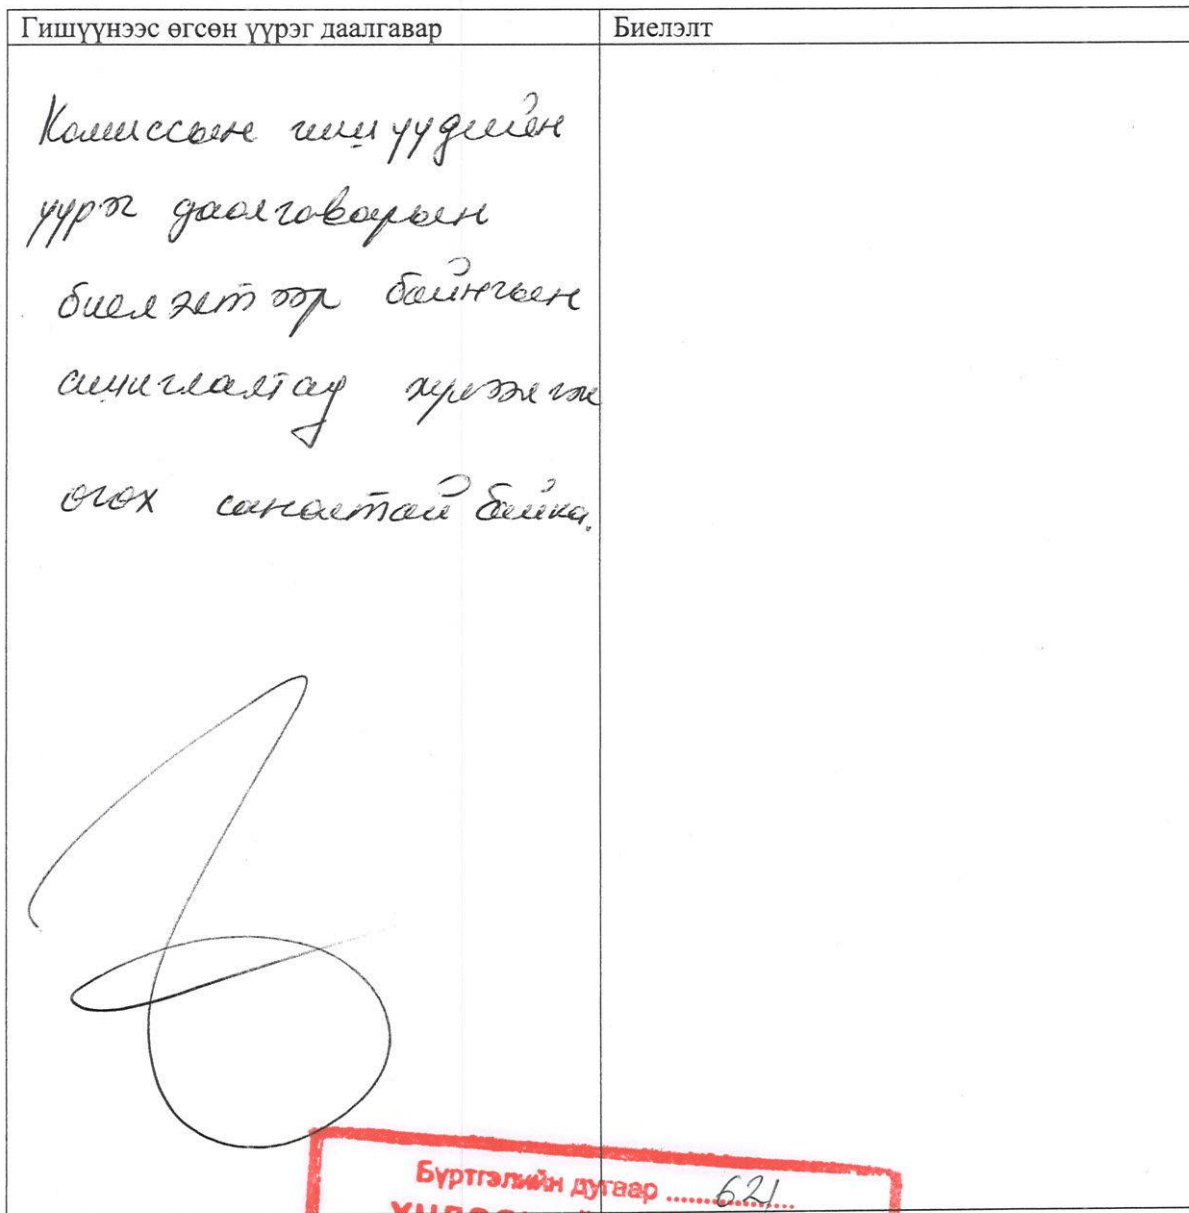 Гишүүнээс өгсөн үүрэг даалгавар
Биелэлт
Комиссын гишүүдийн
үүрэг даалгаварын
биелэлтээр байнгын
ажиглалтад хүрээлгэж
өгөх саналтай байна.
Бүртгэлийн дугаар ......621......